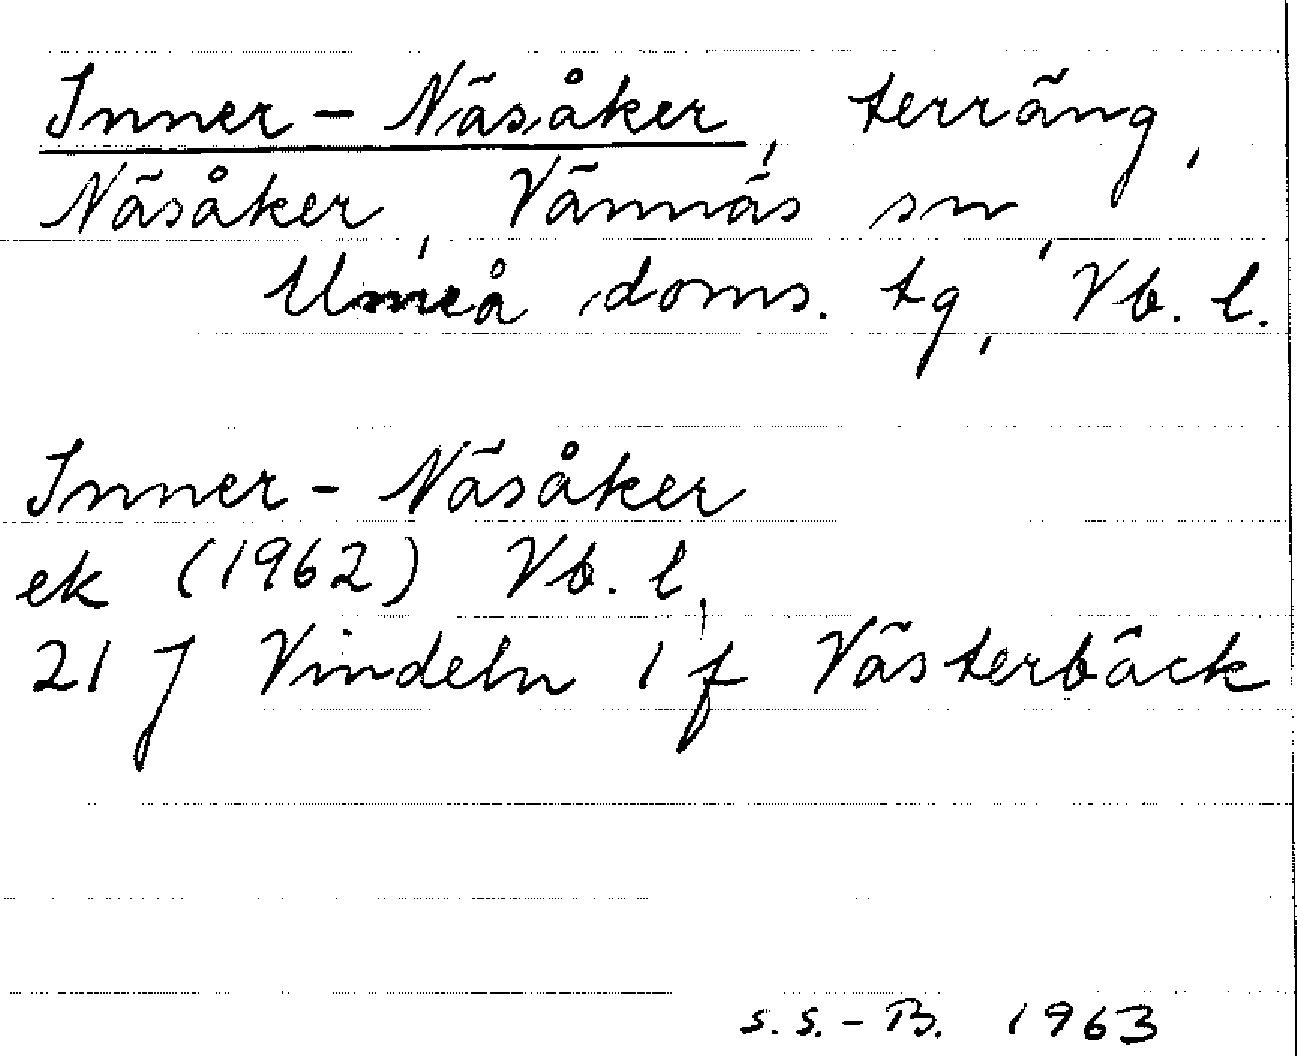 Inner-Näsåker, terräng,
Näsåker, Vännäs sn,
Umeå doms. tg, Vb. l.
Inner-Näsåker
ek (1962) Vb. l,
21 J Vindeln 1 f Västerbäck
S.S.-B. 1963